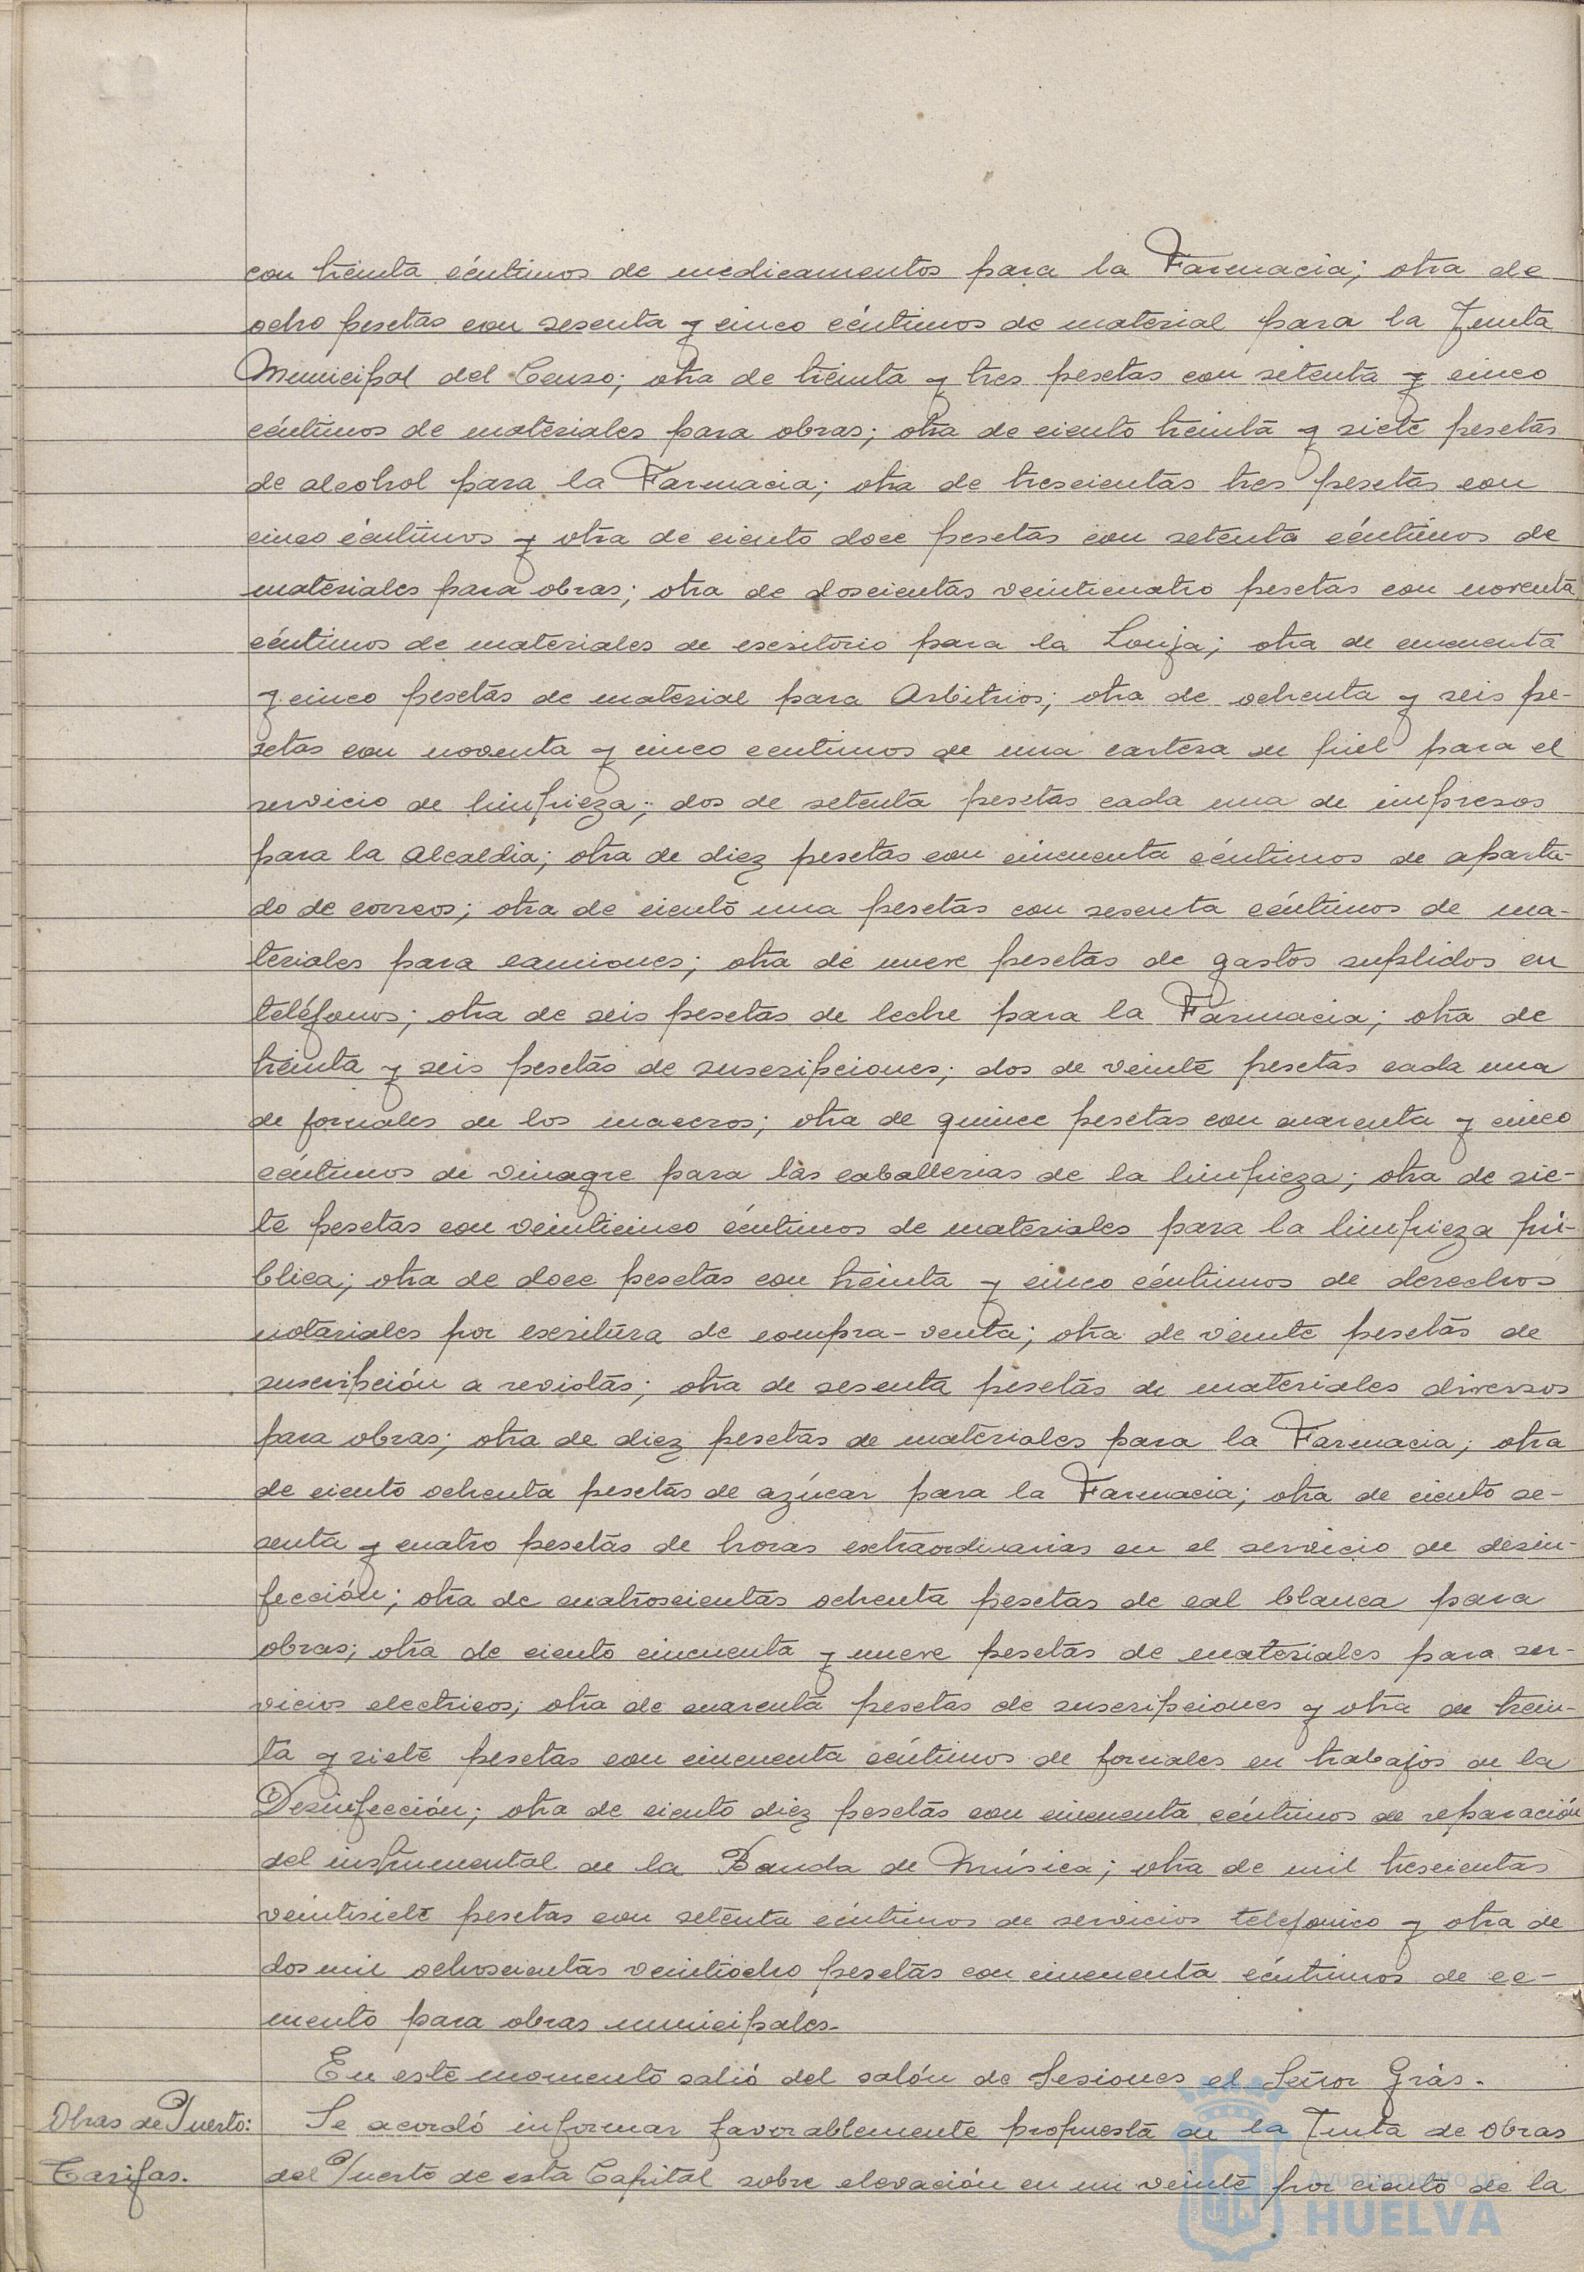 con treinta céntimos de medicamentos para la Farmacia; otra de
ocho pesetas con sesenta y cinco céntimos de material para la Junta
Municipal del Censo; otra de treinta y tres pesetas con setenta y cinco
céntimos de materiales para obras; otra de ciento treinta y siete pesetas
de alcohol para la Farmacia; otra de trescientas tres pesetas con
cinco céntimos y otra de ciento doce pesetas con setenta céntimos de
materiales para obras; otra de doscientas veinticuatro pesetas con noventa
céntimos de materiales de escritorio para la Lonja; otra de cincuenta
y cinco pesetas de material para Arbitrios; otra de ochenta y seis pe-
setas con noventa y cinco centimos de una cartera de piel para el
servicio de limpieza; dos de setenta pesetas cada una de impresos
para la Alcaldia; otra de diez pesetas con cincuenta céntimos de aparta-
do de correos; otra de ciento una pesetas con sesenta céntimos de ma-
teriales para camiones; otra de nueve pesetas de gastos suplidos en
teléfonos; otra de seis pesetas de leche para la Farmacia; otra de
treinta y seis pesetas de suscripciones; dos de veinte pesetas cada una
de jornales de los maceros; otra de quince pesetas con cuarenta y cinco
céntimos de vinagre para las caballerias de la limpieza; otra de sie-
te pesetas con veinticinco céntimos de materiales para la limpieza pú-
blica; otra de doce pesetas con treinta y cinco céntimos de derechos
notariales por escritura de compra-venta; otra de veinte pesetas de
suscripción a revistas; otra de sesenta pesetas de materiales diversos
para obras; otra de diez pesetas de materiales para la Farmacia; otra
de ciento ochenta pesetas de azúcar para la Farmacia; otra de ciento se-
senta y cuatro pesetas de horas extraordinarias en el servicio de desin-
fección; otra de cuatroscientas ochenta pesetas de cal blanca para
obras; otra de ciento cincuenta y nueve pesetas de materiales para ser-
vicios electricos; otra de cuarenta pesetas de suscripciones y otra de trein-
ta y siete pesetas con cincuenta céntimos de jornales en trabajos de la
Desinfección; otra de ciento diez pesetas con cincuenta céntimos de reparación
del instrumental de la Banda de Música; otra de mil trescientas
veintisiete pesetas con setenta céntimos de servicios telefonico y otra de
dos mil ochoscientas veintiocho pesetas con cincuenta céntimos de ce-
mento para obras municipales.
En este momento salió del salón de Sesiones el Señor Grás.
Obras de Puerto: Se acordó informar favorablemente propuesta de la Junta de Obras
Tarifas. del Puerto de esta Capital sobre elevación en un veinte por ciento de la
Ayuntamiento de
HUELVA